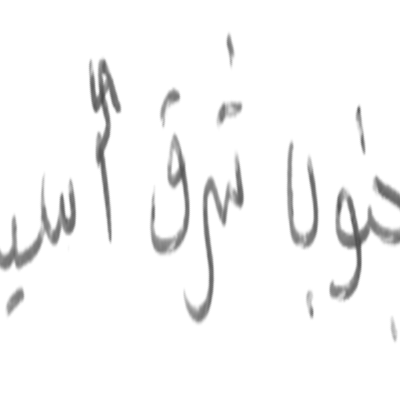 جنوب شرق أسي